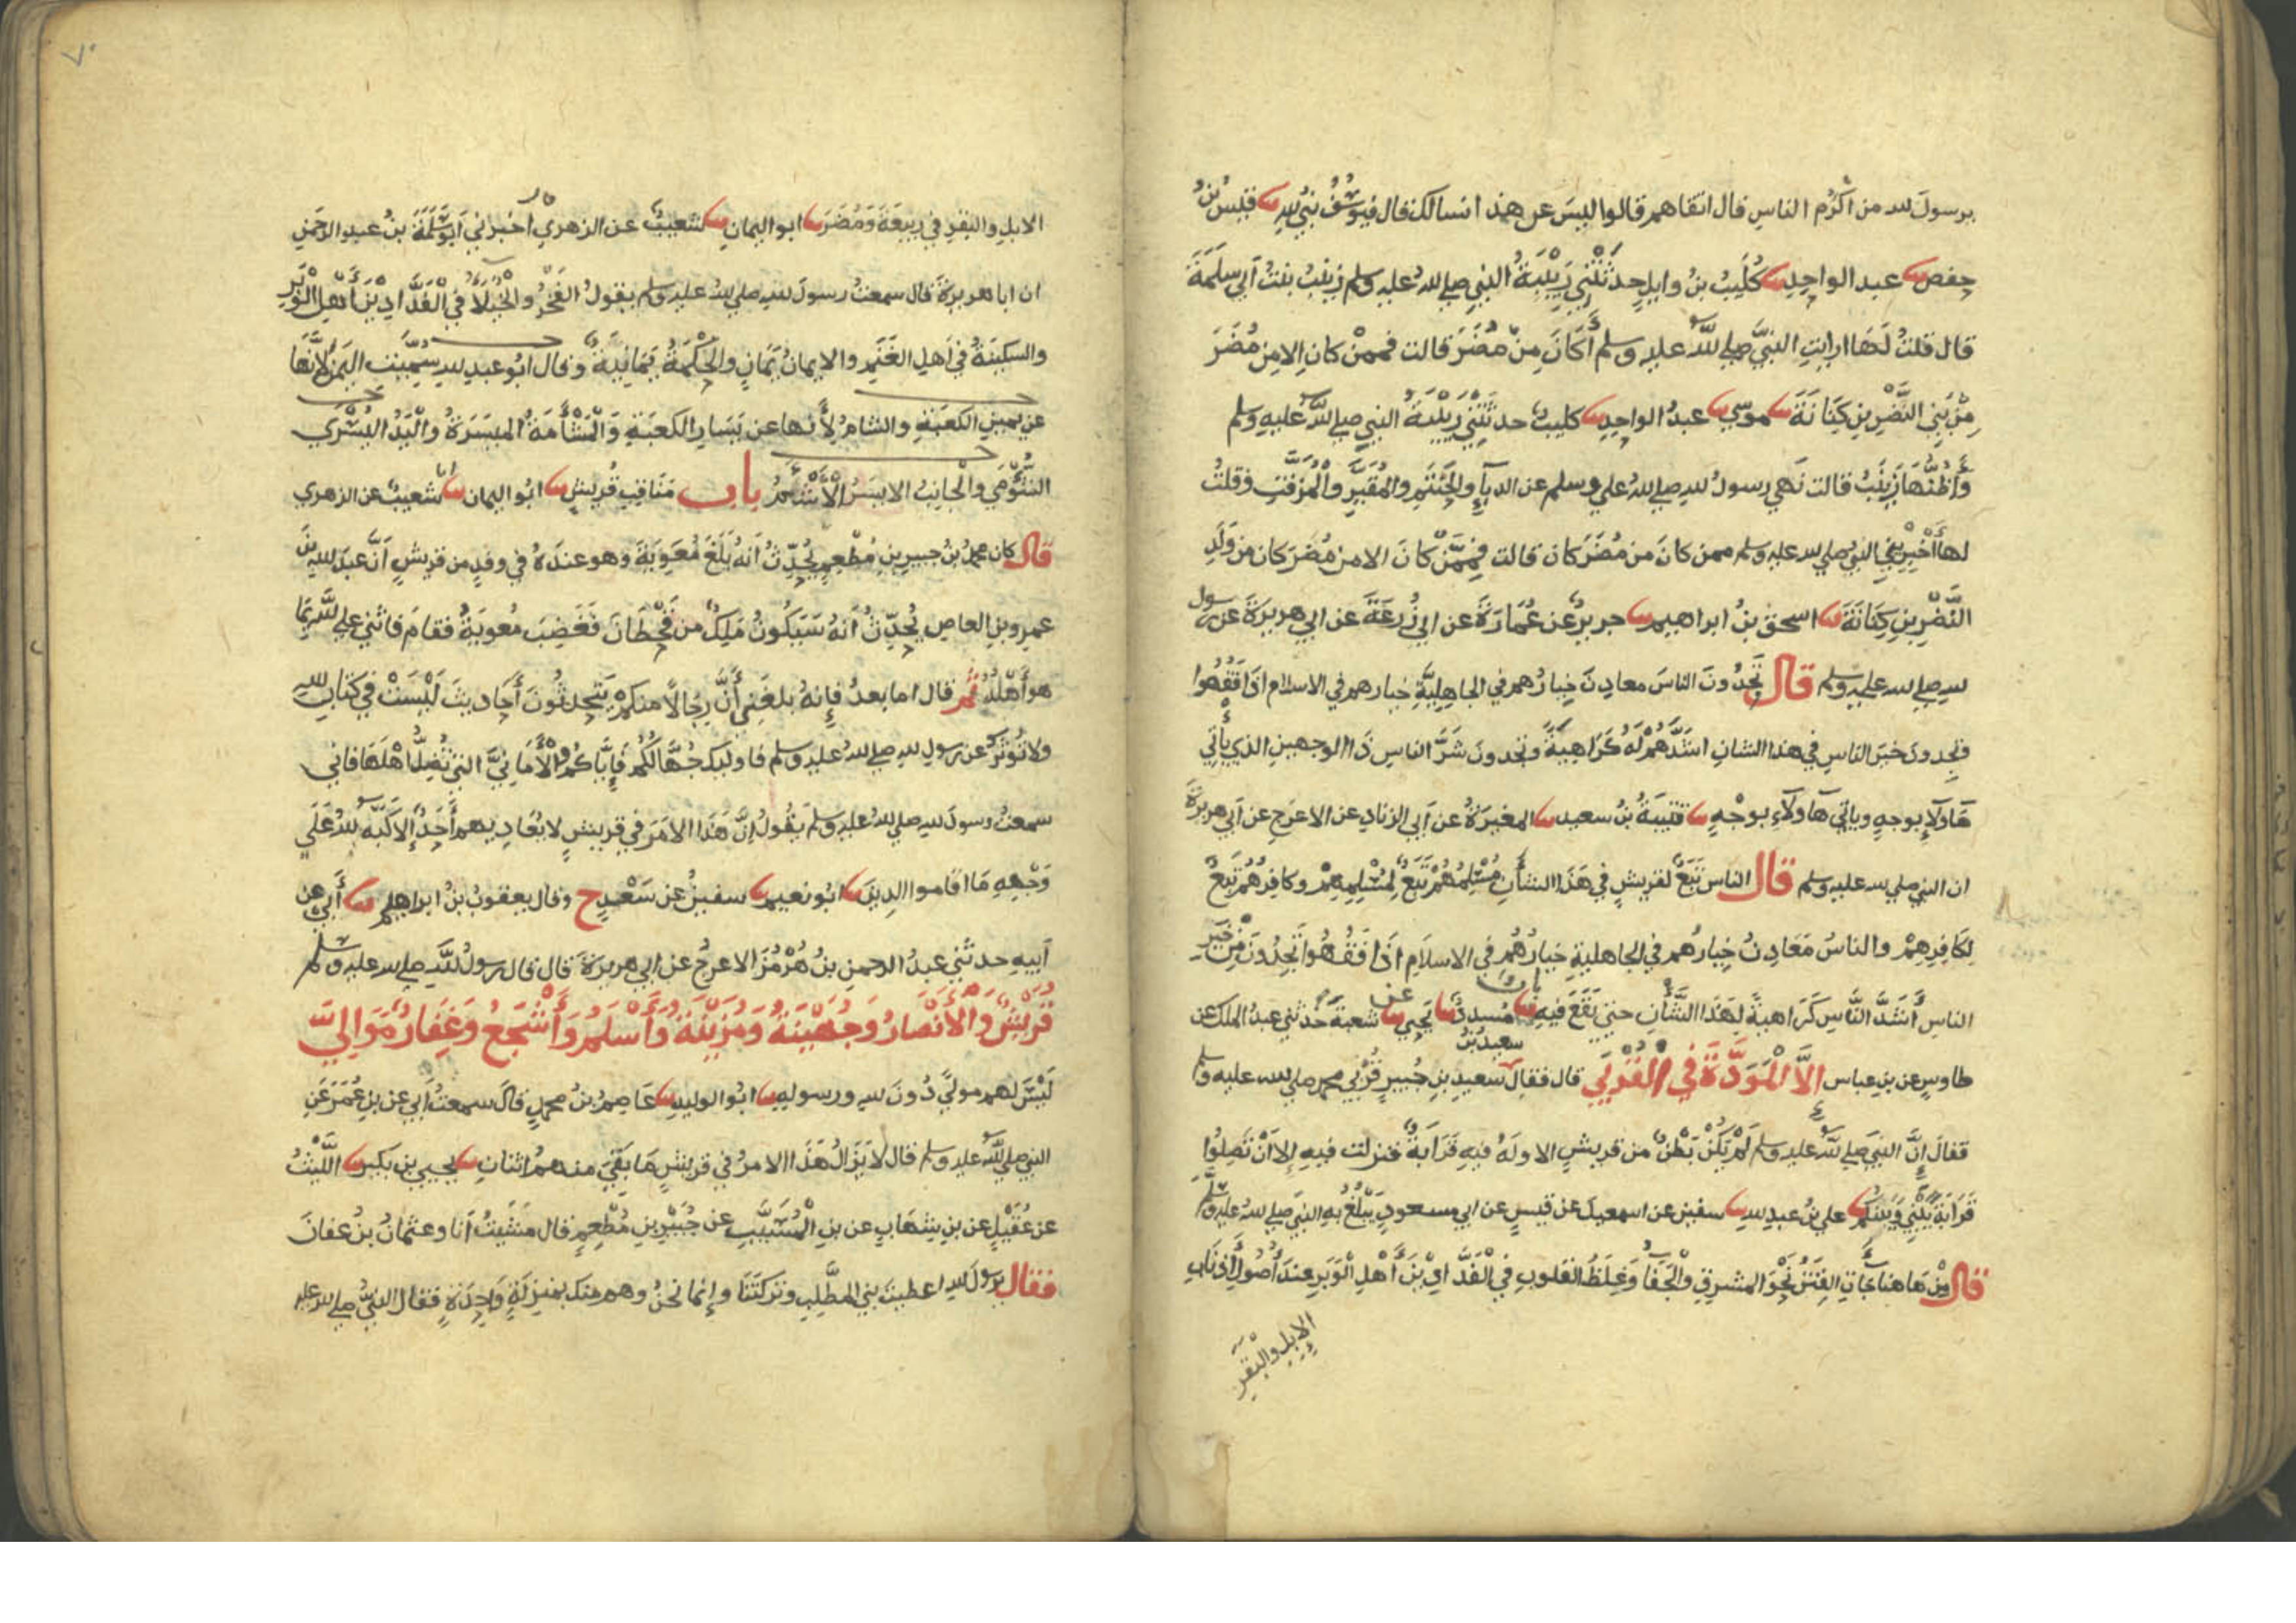 يرسول لله من أكرم الناس قال اتقاهم قالوا ليس عن هذا نسالك قال فيوسف نبي لله ثنا قيس بن
حفص ثنا عبد الواحد ثنا كليب بن وايل حدثتني ربيبة النبي صلى لله عليه وسلم زينب بنت ابي سلمة
قال قلت لها ارايت النبي صلى لله عليه وسلم أكان من مضر قالت فممن كان الا من مضر
من بني النضر بن كنانة ثنا موسى ثنا عبد الواحد ثنا كليب حدثتني ربيبة النبي صلى لله عليه وسلم
وأظنها زينب قالت نهى رسول لله صلى لله عليه وسلم عن الدبآء والحنتم والمقير والمزفت وقلت
لها أخبريني النبي صلى لله عليه وسلم ممن كان من مضر كان قالت فممن كان الا من مضر كان من ولد
النضر بن كنانة ثنا اسحق بن ابراهيم ثنا جرير عن عمارة عن ابي زرعة عن ابي هريرة عن رسول
لله صلى لله عليه وسلم قال تجدون الناس معادن خيارهم في الجاهلية خيارهم في الاسلام اذا فقهوا
وتجدون خير الناس في هذا الشان اشدهم له كراهية وتجدون شر الناس ذا الوجهين الذي يأتي
هاولآء بوجه وياتي هاولآء بوجه ثنا قتيبة بن سعيد ثنا المغيرة عن أبي الزناد عن الاعرج عن أبي هريرة
ان النبي صلى لله عليه وسلم قال الناس تبع لقريش في هذا الشأن مسلمهم تبع لمسلمهم وكافرهم تبع
لكافرهم والناس معادن خيارهم في الجاهلية خيارهم في الاسلام اذا فقهوا تجدون من خير
الناس أشد الناس كراهية لهذا الشأن حتى يقع فيه باب ثنا مسدد ثنا يحيى عن شعبة حدثني عبد الملك عن
طاوس عن بن عباس الا المودة في القربى قال فقال سعيد بن جبير قربى محمد صلى لله عليه وسلم
فقال إن النبي صلى لله عليه وسلم لم يكن بطن من قريش الا وله فيه قرابة فنزلت فيه إلا أن تصلوا
قرابة بيني وبينكم ثنا علي بن عبد لله ثنا سفين عن اسمعيل عن قيس عن ابي مسعود يبلغ به النبي صلى لله عليه وسلم
قال من هاهنا جاءت الفتن نحو المشرق والجفا وغلظ القلوب في الفدادين أهل الوبر عند أصول أذناب
الإبل والبقر
الابل والبقر في ربيعة ومضر ثنا ابو اليمان ثنا شعيب عن الزهري أخبرني أبو سلمة بن عبد الرحمن
ان ابا هريرة قال سمعت رسول لله صلى لله عليه وسلم يقول الفخر والخيلاء في الفدادين أهل الوبر
والسكينة في أهل الغنم والايمان يمان والحكمة يمانية وقال ابو عبد لله سميت اليمن لأنها
عن يمين الكعبة والشام لأنها عن يسار الكعبة والمشأمة الميسرة واليد اليسرى
الشؤمى والجانب الايسر الأشئم باب مناقب قريش ثنا ابو اليمان انا شعيب عن الزهري
قال كان محمد بن جبير بن مطعم يحدث أنه بلغ معوية وهو عنده في وفد من قريش أن عبد لله بن
عمرو بن العاص يحدث أنه سيكون ملك من قحطان فغضب معوية فقام فاثنى على لله بما
هو أهله ثم قال اما بعد فإنه بلغني أن رجالا منكم يتحدثون أحاديث ليست في كتاب لله
ولا تؤثر عن رسول لله صلى لله عليه وسلم فاوليك جهالكم فإياكم والأماني التي تضل أهلها فاني
سمعت رسول لله صلى لله عليه وسلم يقول إن هذا الامر في قريش لا يعاديهم أحد إلا كبه لله على
وجهه ما اقاموا الدين ثنا ابو نعيم ثنا سفين عن سعد ح وقال يعقوب بن ابراهيم ثنا أبي عن
أبيه حدثني عبد الرحمن بن هرمز الاعرج عن ابي هريرة قال قال رسول لله صلى لله عليه وسلم
قريش والأنصار وجهينة ومزينة وأسلم وأشجع وغفار موالي
ليس لهم مولى دون لله ورسوله ثنا ابو الوليد ثنا عاصم بن محمد قال سمعت أبي عن بن عمر عن
النبي صلى لله عليه وسلم قال لا يزال هذا الامر في قريش ما بقي منهم اثنان ثنا يحيى بن بكير ثنا الليث
عن عقيل عن بن شهاب عن بن المسيب عن جبير بن مطعم قال مشيت أنا وعثمان بن عفان
فقال يرسول لله اعطيت بني المطلب وتركتنا وإنما نحن وهم منك بمنزلة واحدة فقال النبي صلى لله عليه